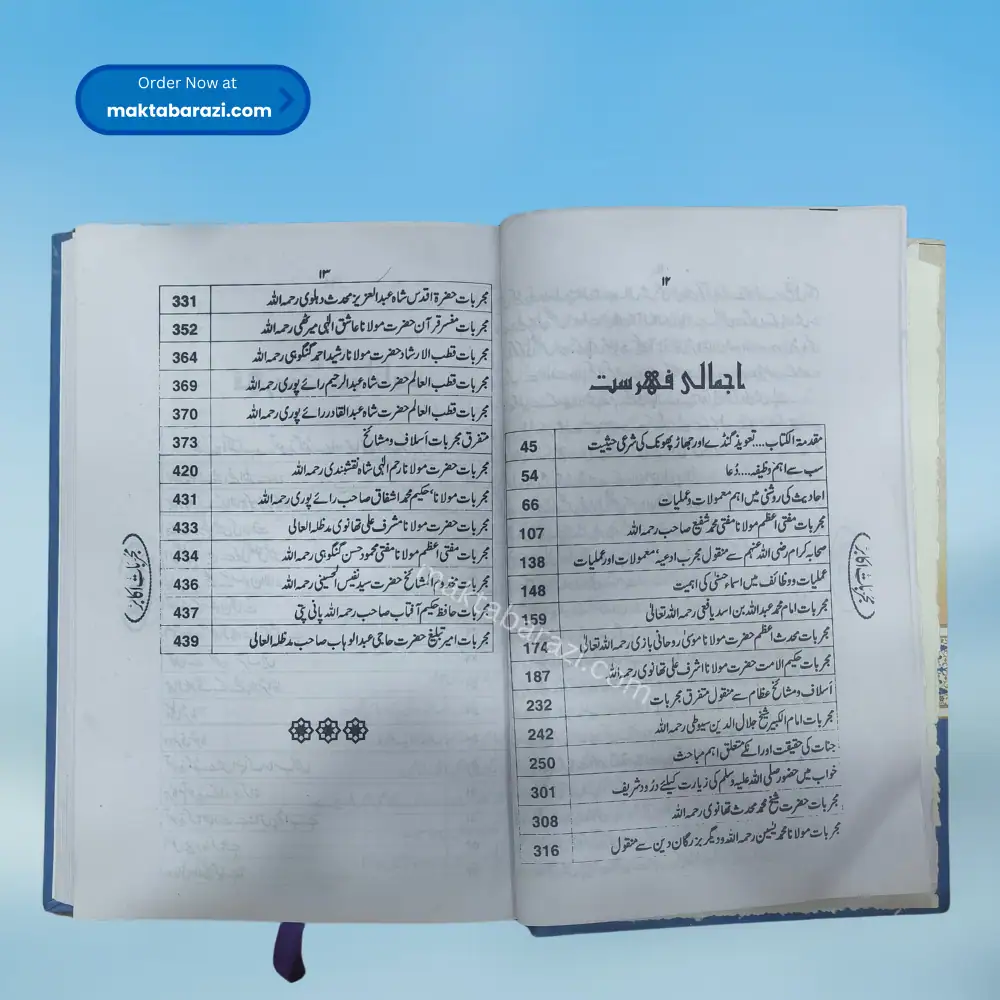 Order Now at
maktabarazi.com
۱۲
اجمالی فہرست
مقدمۃ الکتاب....تعویذ گنڈے اور جھاڑ پھونک کی شرعی حیثیت 45
سب سے اہم وظیفہ...دُعا 54
احادیث کی روشنی میں اہم معمولات و عملیات 66
مجربات مفتی اعظم مولانا مفتی محمد شفیع صاحب رحمہ اللہ 107
صحابہ کرام رضی اللہ عنہم سے منقول مجرب ادعیہ، معمولات اور عملیات 138
عملیات و وظائف میں اسماء حسنٰی کی اہمیت 148
مجربات امام محمد عبداللہ بن اسد یافعی رحمہ اللہ تعالیٰ 159
مجربات محدث اعظم حضرت مولانا موسیٰ روحانی بازی رحمہ اللہ تعالیٰ 174
مجربات حکیم الامت حضرت مولانا اشرف علی تھانوی رحمہ اللہ 187
اَسلاف و مشائخ عظام سے منقول متفرق مجربات 232
مجربات امام الکبیر شیخ جلال الدین سیوطی رحمہ اللہ 242
جنات کی حقیقت اور انکے متعلق اہم مباحث 250
خواب میں حضور صلی اللہ علیہ وسلم کی زیارت کیلئے درُود شریف 301
مجربات حضرت شیخ محمد محدث تھانوی رحمہ اللہ 308
مجربات مولانا محمد یٰسین رحمہ اللہ و دیگر بزرگان دین سے منقول 316
مجربات اکابر
۱۳
مجربات حضرۃ اقدس شاہ عبدالعزیز محدث دہلوی رحمہ اللہ 331
مجربات مفسر قرآن حضرت مولانا عاشق الٰہی میرٹھی رحمہ اللہ 352
مجربات قطب الارشاد حضرت مولانا رشید احمد گنگوہی رحمہ اللہ 364
مجربات قطب العالم حضرت شاہ عبدالرحیم رائے پوری رحمہ اللہ 369
مجربات قطب العالم حضرت شاہ عبدالقادر رائے پوری رحمہ اللہ 370
متفرق مجربات اَسلاف و مشائخ 373
مجربات حضرت مولانا رحم الٰہی شاہ نقشبندی رحمہ اللہ 420
مجربات مولانا، حکیم محمد اشفاق صاحب رائے پوری رحمہ اللہ 431
مجربات حضرت مولانا مشرف علی تھانوی مدظلہ العالی 433
مجربات مفتی اعظم مولانا مفتی محمود حسن گنگوہی رحمہ اللہ 434
مجربات مخدوم المشائخ حضرت سید نفیس الحسینی رحمہ اللہ 436
مجربات حافظ حکیم آفتاب صاحب رحمہ اللہ پانی پتی 437
مجربات امیر تبلیغ حضرت حاجی عبدالوہاب صاحب مدظلہ العالی 439
مجربات اکابر
maktabarazi.com